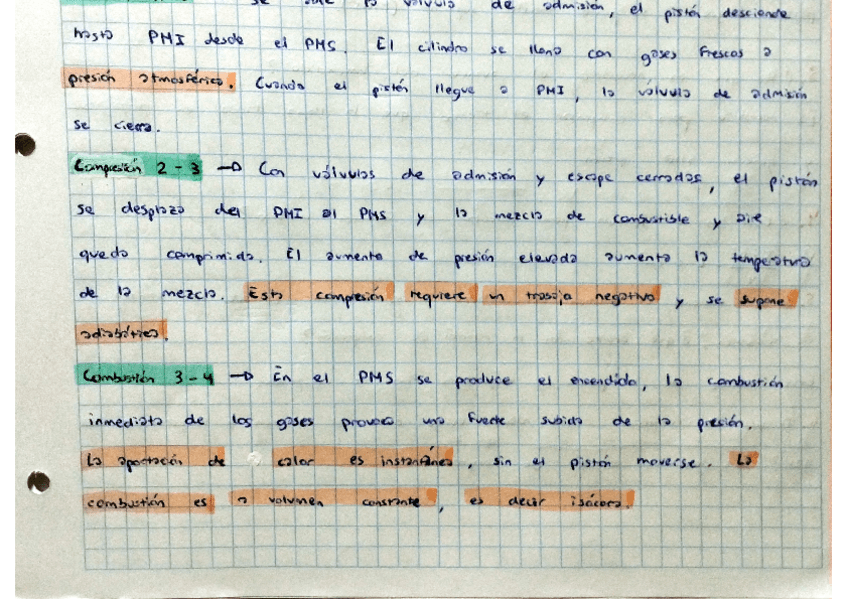 se abre la válvula de admisión, el pistón desciende
hasta PMI desde el PMS. El cilindro se llena con gases frescos a
presión atmosférica. Cuando el pistón llegue a PMI, la válvula de admisión
se cierra.
Compresión 2-3 → Con válvulas de admisión y escape cerradas, el pistón
se desplaza del PMI al PMS y la mezcla de combustible y aire
queda comprimida. El aumento de presión elevada aumenta la temperatura
de la mezcla. Esta compresión requiere un trabajo negativo y se supone
adiabática.
Combustión 3-4 → En el PMS se produce el encendido, la combustión
inmediata de los gases provoca una fuerte subida de la presión.
La aportación de calor es instantánea, sin el pistón moverse. La
combustión es a volumen constante, es decir isócora.